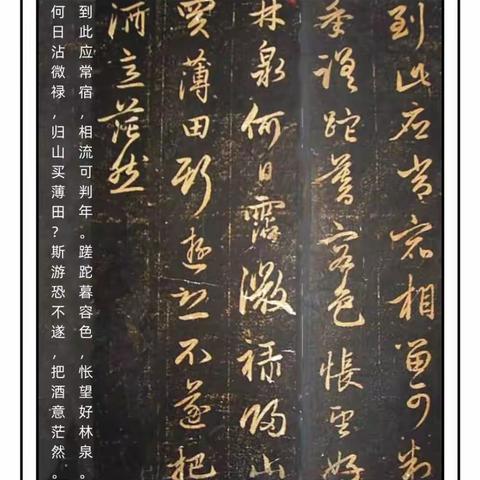 到此應常宿相留可判
年蹉跎暮容色悵望好
林泉何日霑微禄歸山
買薄田斯遊恐不遂把
酒意茫然
到此应常宿，相流可判年。蹉跎暮容色，怅望好林泉。
何日沾微禄，归山买薄田？斯游恐不遂，把酒意茫然。